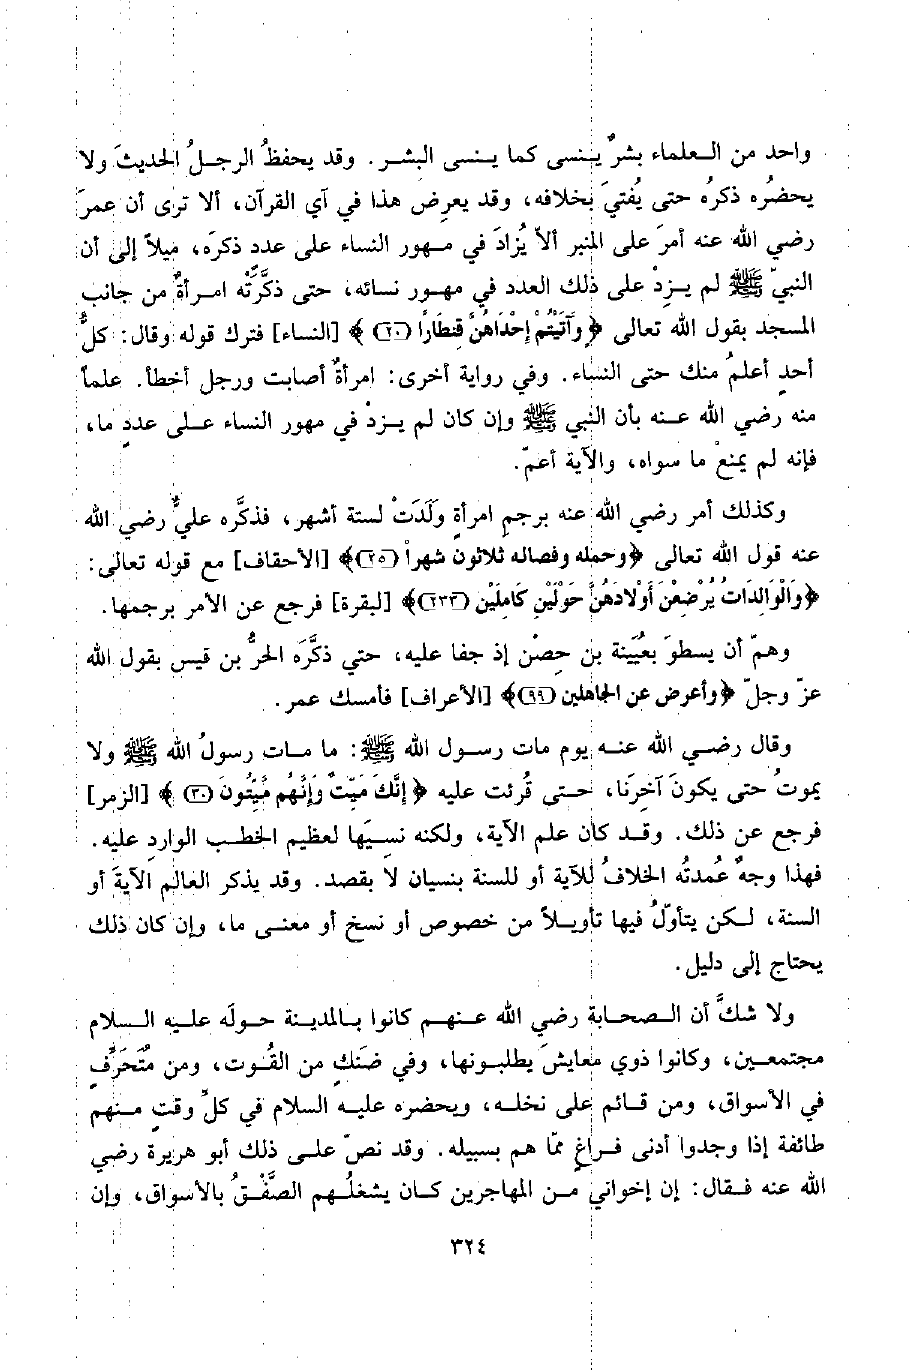 واحد من العلماء بشرٌ ينسى كما ينسى البشر. وقد يحفظُ الرجلُ الحديثَ ولا
يحضرُه ذكرُه حتى يُفتيَ بخلافه، وقد يعرِض هذا في آي القرآن، ألا ترى أن عمرَ
رضي الله عنه أمرَ على المنبر ألاّ يُزادَ في مهور النساء على عدد ذكرَه، ميلاً إلى أن
النبيّ ﷺ لم يزِدْ على ذلك العدد في مهور نسائه، حتى ذكَّرتْه امرأةٌ من جانب
المسجد بقول الله تعالى ﴿وَآتَيْتُمْ إِحْدَاهُنَّ قِنطَارًا (٢٠)﴾ [النساء] فترك قوله وقال: كلُّ
أحدٍ أعلمُ منك حتى النساء. وفي رواية أخرى: امرأةٌ أصابت ورجل أخطأ. علماً
منه رضي الله عنه بأن النبي ﷺ وإن كان لم يزدْ في مهور النساء على عددٍ ما،
فإنه لم يمنعْ ما سواه، والآية أعمّ.
وكذلك أمر رضي الله عنه برجمِ امرأةٍ ولَدَتْ لستة أشهر، فذكَّره عليٌّ رضي الله
عنه قول الله تعالى ﴿وحمله وفصاله ثلاثون شهراً (١٥)﴾ [الأحقاف] مع قوله تعالى:
﴿وَالْوَالِدَاتُ يُرْضِعْنَ أَوْلادَهُنَّ حَوْلَيْنِ كَامِلَيْنِ (٢٣٣)﴾ [لبقرة] فرجع عن الأمر برجمها.
وهمّ أن يسطوَ بعُيَينة بن حِصْن إذ جفا عليه، حتي ذكَّرَه الحرُّ بن قيس بقول الله
عزّ وجلّ ﴿وأعرض عن الجاهلين (٩٩)﴾ [الأعراف] فأمسك عمر.
وقال رضي الله عنه يوم مات رسول الله ﷺ: ما مات رسولُ الله ﷺ ولا
يموتُ حتى يكونَ آخرَنا، حتى قُرئت عليه ﴿إِنَّكَ مَيِّتٌ وَإِنَّهُم مَّيِّتُونَ (٣٠)﴾ [الزمر]
فرجع عن ذلك. وقد كان علم الآية، ولكنه نسيَها لعظيم الخطب الواردِ عليه.
فهذا وجهٌ عُمدتُه الخلافُ للآية أو للسنة بنسيان لا بقصد. وقد يذكر العالم الآيةَ أو
السنة، لكن يتأوّلُ فيها تأويلاً من خصوص أو نسخ أو معنى ما، وإن كان ذلك
يحتاج إلى دليل.
ولا شكَّ أن الصحابة رضي الله عنهم كانوا بالمدينة حولَه عليه السلام
مجتمعين، وكانوا ذوي معايشَ يطلبونها، وفي ضَنَكٍ من القُوت، ومن مُتَحَرِّفٍ
في الأسواق، ومن قائم على نخله، ويحضره عليه السلام في كلّ وقتٍ منهم
طائفة إذا وجدوا أدنى فراغٍ ممّا هم بسبيله. وقد نصّ على ذلك أبو هريرة رضي
الله عنه فقال: إن إخواني من المهاجرين كان يشغلُهم الصَّفْقُ بالأسواق، وإن
٣٢٤